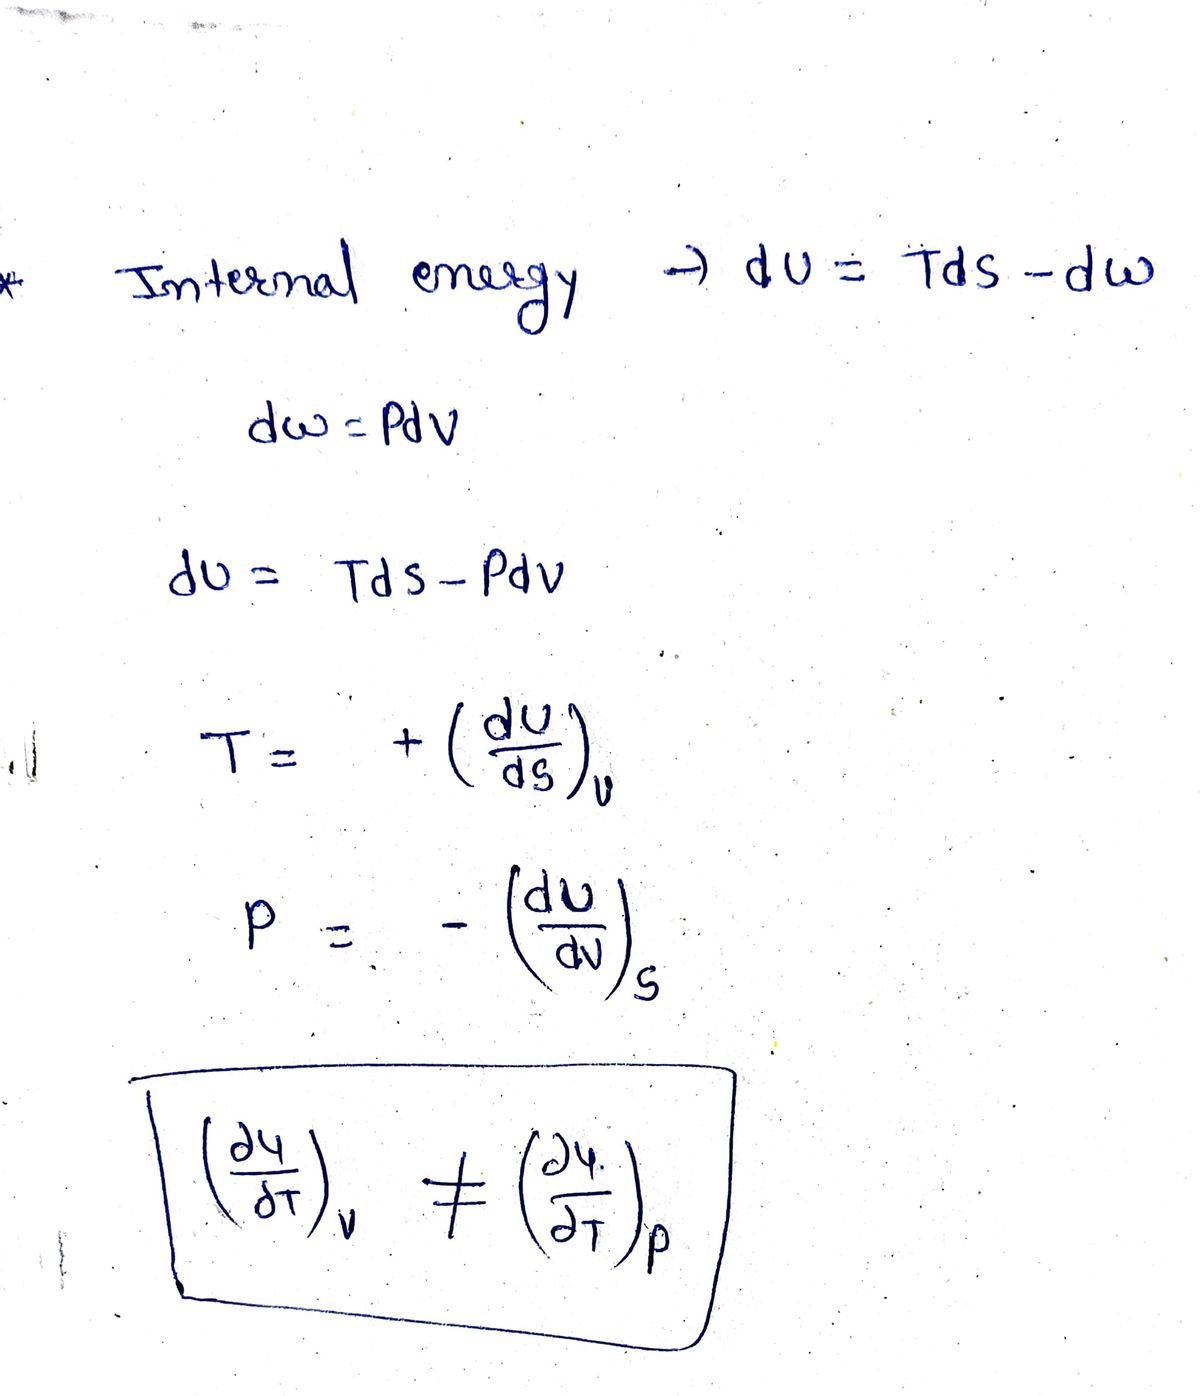 * Internal energy → dU = TdS - dw
dw = PdV
dU = TdS - PdV
T = + (dU/dS)_V
P = - (dU/dV)_S
(∂U/∂T)_V ≠ (∂U/∂T)_P